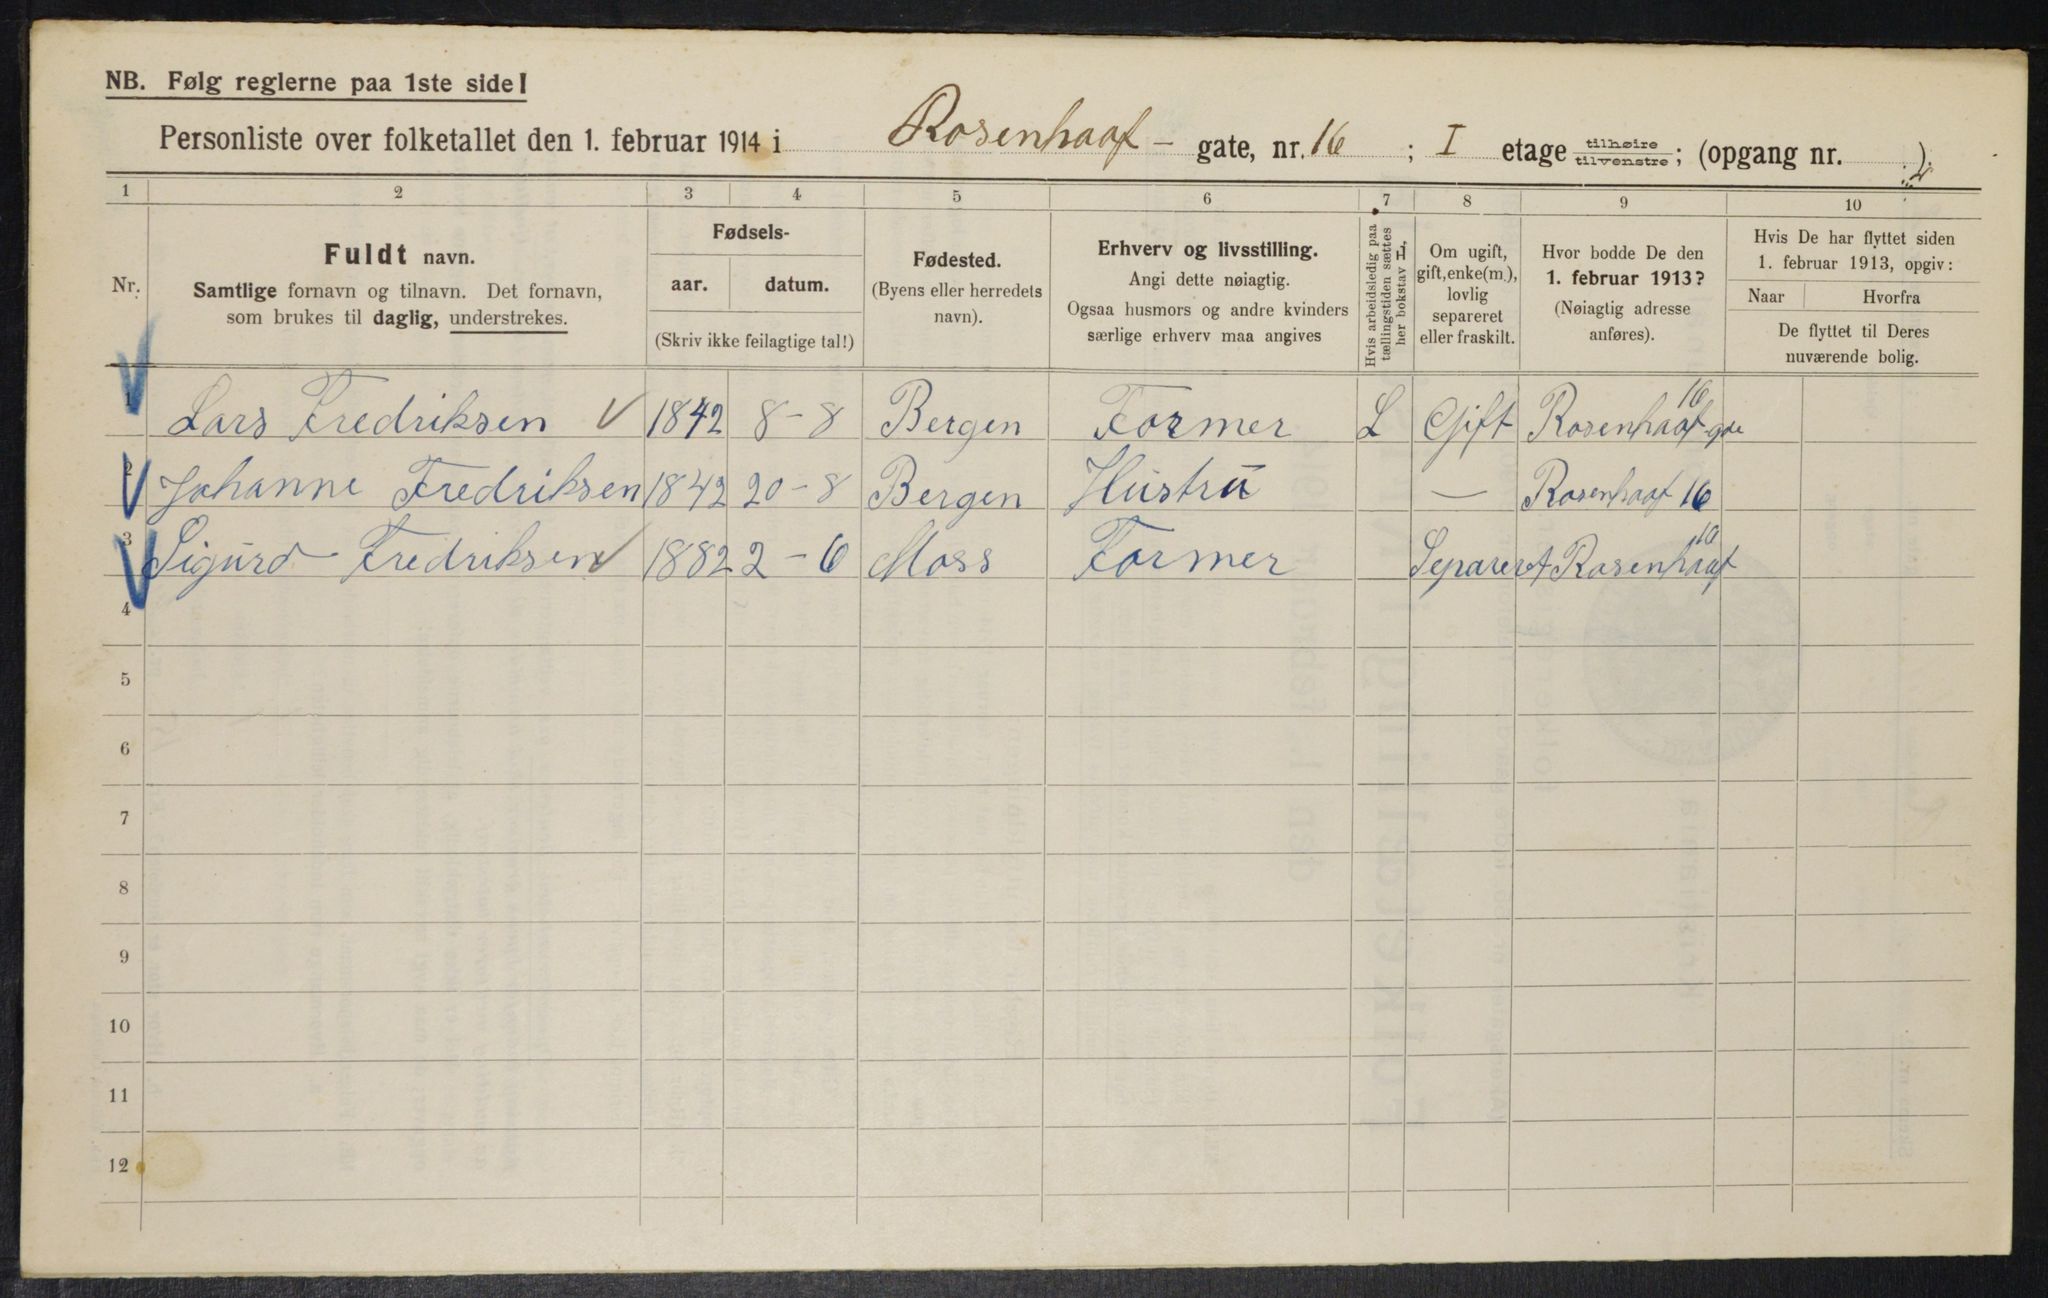 NB. Følg reglerne paa 1ste side!
Personliste over folketallet den 1. februar 1914 i Rosenhoof - gate, nr. 16 ; I etage tilhøire tilvenstre; (opgang nr. ).
1 2 3 4 5 6 7 8 9 10
Nr.
Fuldt navn.
Samtlige fornavn og tilnavn. Det fornavn,
som brukes til daglig, understrekes.
Fødsels-
aar. datum.
(Skriv ikke feilagtige tal!)
Fødested.
(Byens eller herredets
navn).
Erhverv og livsstilling.
Angi dette nøiagtig.
Ogsaa husmors og andre kvinders
særlige erhverv maa angives
Hvis arbeidsledig paa
tællingstiden sættes
her bokstav L.
Om ugift,
gift, enke(m.),
lovlig
separeret
eller fraskilt.
Hvor bodde De den
1. februar 1913?
(Nøiagtig adresse
anføres).
Hvis De har flyttet siden
1. februar 1913, opgiv:
Naar Hvorfra
De flyttet til Deres
nuværende bolig.
1 Lars Fredriksen 1842 8-8 Bergen Former L Gift Rosenhoof gae 16
2 Johanne Fredriksen 1842 20-8 Bergen Hustru — Rosenhoof 16
3 Sigurd Fredriksen 1882 2-6 Moss Former Separeret Rosenhoof 16
4
5
6
7
8
9
10
11
12